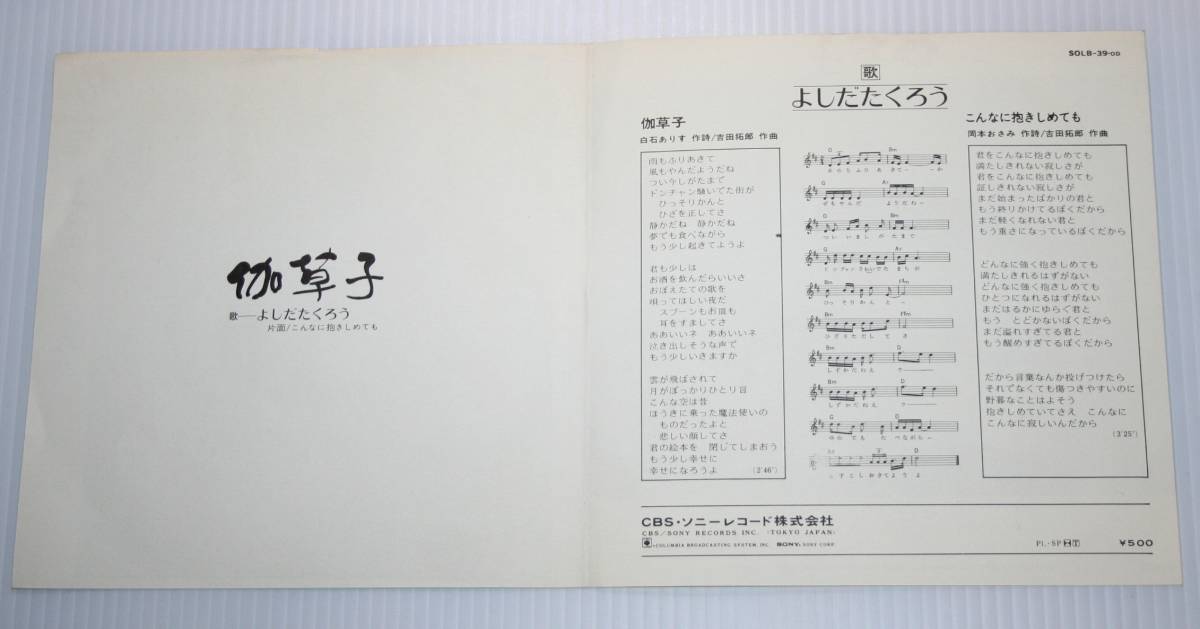 伽草子
歌──よしだたくろう
片面/こんなに抱きしめても
SOLB-39-OD
歌
よしだたくろう
伽草子
白石ありす 作詩/吉田拓郎 作曲
雨もふりあきて
風もやんだようだね
つい今しがたまで
ドンチャン騒いでた街が
ひっそりかんと
ひざを正してさ
静かだね 静かだね
夢でも食べながら
もう少し起きてようよ
君も少しは
お酒を飲んだらいいさ
おぼえたての歌を
唄ってほしい夜だ
スプーンもお皿も
耳をすましてさ
ああいいネ ああいいネ
泣き出しそうな声で
もう少しいきますか
雲が飛ばされて
月がぽっかりひとり言
こんな空は昔
ほうきに乗った魔法使いの
ものだったよと
悲しい顔してさ
君の絵本を 閉じてしまおう
もう少し幸せに
幸せになろうよ (2'46")
D Bm
あめもふりあきて か
G A7
ぜもやんだ ようだね
D Bm
つい いまし がたまで
G A7
ドンチャンさわいでた まちが
Bm F#m
ひっ そりかん と
Bm F#m
ひざをただして さ
Bm D
しずかだねえ
Bm D
しずかだねえ
G D
ゆめ でも た べながら
D
うすこしおきてようよ
こんなに抱きしめても
岡本おさみ 作詩/吉田拓郎 作曲
君をこんなに抱きしめても
満たしきれない寂しさが
君をこんなに抱きしめても
証しきれない寂しさが
まだ始まったばかりの君と
もう終りかけてるぼくだから
まだ軽くなれない君と
もう重さになっているぼくだから
どんなに強く抱きしめても
満たしきれるはずがない
どんなに強く抱きしめても
ひとつになれるはずがない
まだはるかにゆらぐ君と
もう とどかないぼくだから
まだ溢れすぎてる君と
もう醒めすぎてるぼくだから
だから言葉なんか投げつけたら
それでなくても傷つきやすいのに
野暮なことはよそう
抱きしめていてさえ こんなに
こんなに寂しいんだから
(3'25")
CBS・ソニーレコード株式会社
CBS/SONY RECORDS INC. (TOKYO JAPAN)
COLUMBIA BROADCASTING SYSTEM, INC. SONY: SONY CORP.
PL・SP
¥500